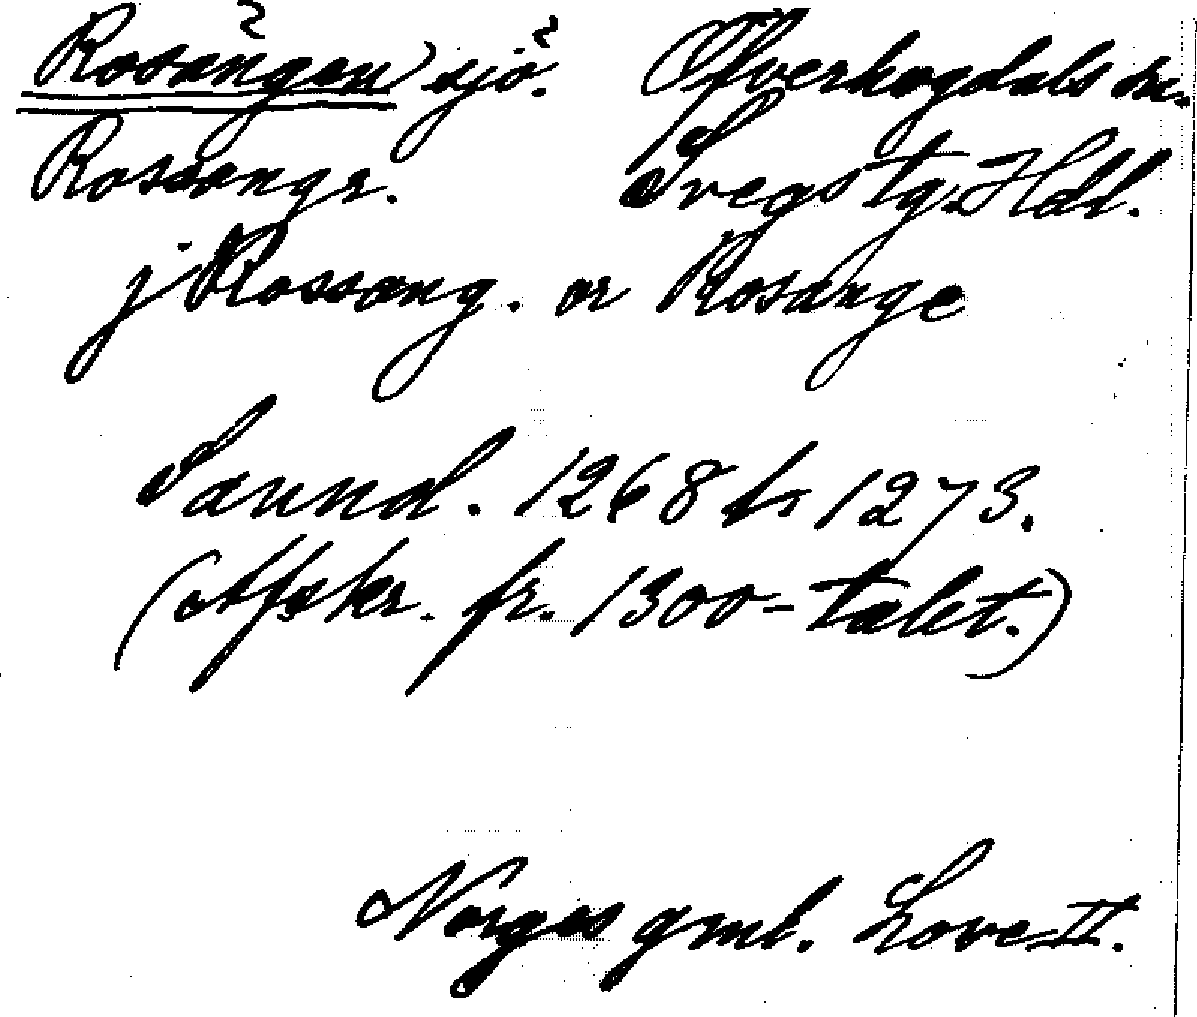 Rosången, sjö. Öfverhogdals sn.
Rossængr. Svegs tg. Hdl.
j Rossæng. or Rosänge
Sannol. 1268 h 1273.
(Afskr. fr. 1300-talet.)
Norges gml. Love II.